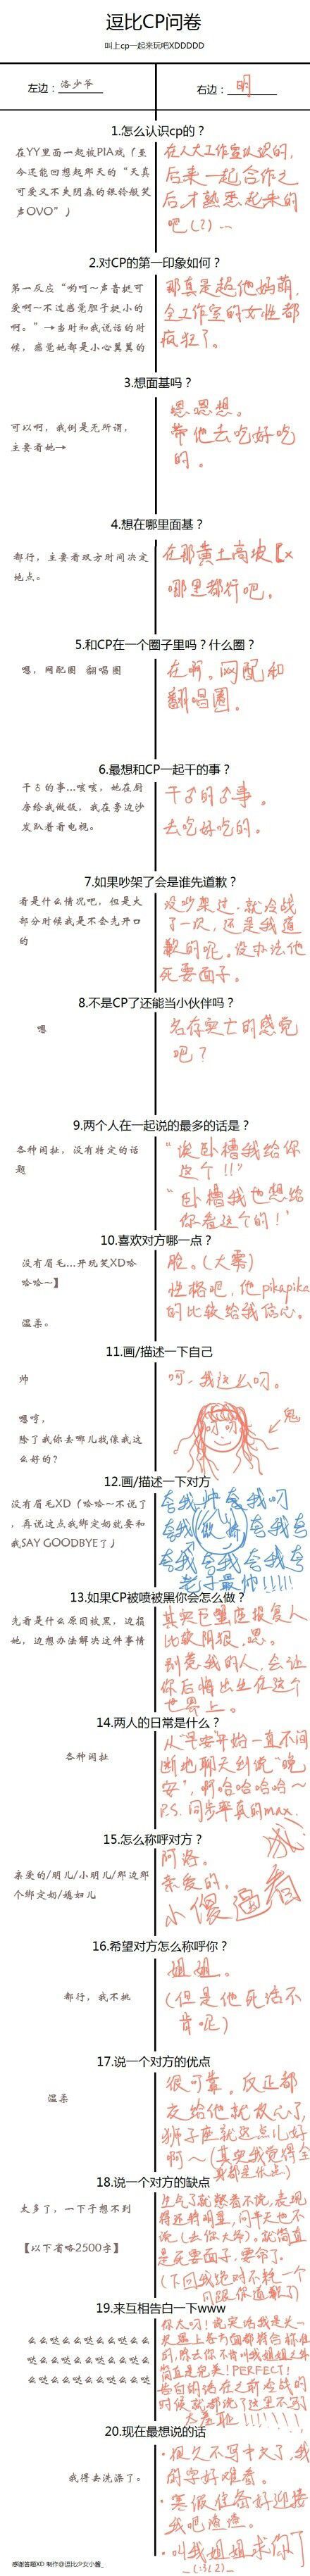 逗比CP问卷
叫上cp一起来玩吧XDDDDD
左边：洛少爷
右边：明
1.怎么认识cp的？
在YY里面一起被PIA戏（至
今还能回想起那天的“天真
可爱又不失阴森的银铃般笑
声OVO”）
在人大工作室认识的，
后来一起合作之
后才熟悉起来的
吧（?）…
2.对CP的第一印象如何？
第一反应“哟呵~声音挺可
爱啊~不过感觉胆子挺小的
啊。”→当时和我说话的时
候，感觉她都是小心翼翼的
那真是超他妈萌，
全工作室的女性都
疯狂了。
3.想面基吗？
可以啊，我倒是无所谓，
主要看她→
嗯嗯想。
带他去吃好吃
的。
4.想在哪里面基？
都行，主要看双方时间决定
地点。
在那黄土高坡【x
哪里都行吧。
5.和CP在一个圈子里吗？什么圈？
嗯，网配圈 翻唱圈
在啊。网配和
翻唱圈。
6.最想和CP一起干的事？
干♂的事…咳咳，她在厨
房给我做饭，我在旁边沙
发趴着看电视。
干♂的♂事。
去吃好吃的。
7.如果吵架了会是谁先道歉？
看是什么情况吧，但是大
部分时候我是不会先开口
的
没吵架过，就冷战
了一次，还是我道
歉的呢。没办法他
死要面子。
8.不是CP了还能当小伙伴吗？
嗯
名存实亡的感觉
吧？
9.两个人在一起说的最多的话是？
各种闲扯，没有特定的话
题
“诶卧槽我给你
这个！！”
“卧槽我也想给
你看这个的！”
10.喜欢对方哪一点？
没有眉毛…开玩笑XD哈
哈哈~】
温柔。
脸。（大雾）
性格吧，他pikapika
的比较给我信心。
11.画/描述一下自己
帅
嗯哼，
除了我你去哪儿找像我这
么好的？
呵，我这么叼。
鬼
12.画/描述一下对方
没有眉毛XD（哈哈~不说了
，再说这点我绑定奶就要和
我SAY GOODBYE了）
夸我帅夸我叼
老子最帅!!!!
13.如果CP被喷被黑你会怎么做？
先看是什么原因被黑，边损
她，边想办法解决这件事情
其实巨蟹座报复人
比较阴狠，嗯。
别惹我的人，会让
你后悔出生在这个
世界上。
14.两人的日常是什么？
各种闲扯
从“早安”开始一直不间
断地聊天到说“晚
安”，啊哈哈哈哈~
P.S.同步率真的max.
15.怎么称呼对方？
亲爱的/明儿/小明儿/那边那
个绑定奶/媳妇儿
阿洛。
亲爱的。
小傻逼
16.希望对方怎么称呼你？
都行，我不挑
姐姐。
（但是他死活不
肯呢）
17.说一个对方的优点
温柔
很可靠。反正都
交给他就放心了，
狮子座就这点儿好
啊~（其实我觉得全
身都是优点）
18.说一个对方的缺点
太多了，一下子想不到
【以下省略2500字】
生气了就憋着不说，表现
得还特明显，问半天也不
说（去你大爷）。就简直
是死要面子，要命了。
19.来互相告白一下www
么么哒么么哒么么哒么么
哒么么哒么么哒么么哒么
么哒么么哒么么哒么么哒
20.现在最想说的话
我得去洗澡了。
·很久不写中文了，我
的字好难看。
·寒假准备好迎接
我吧渣渣。
·叫我姐姐求你了
_(:3」∠)_
感谢答题XD 制作@逗比少女小酱_